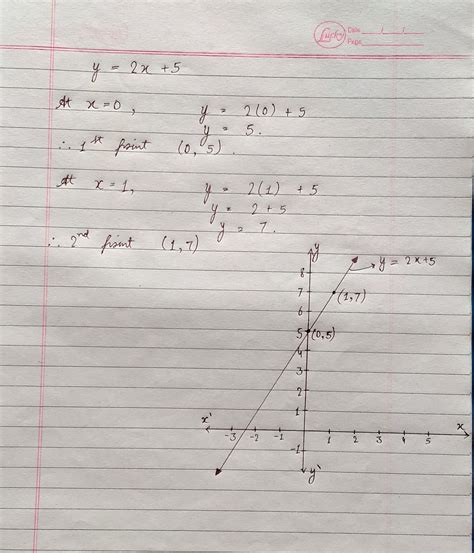 Lucky Date / /
Page
y = 2x + 5
At x = 0, y = 2(0) + 5
y = 5.
∴ 1st point (0, 5).
At x = 1, y = 2(1) + 5
y = 2 + 5
y = 7.
∴ 2nd point (1, 7)
y
y = 2x+5
8
7 (1,7)
6
5 (0,5)
4
3
2
1
x' x
-3 -2 -1 1 2 3 4 5
-1
y'